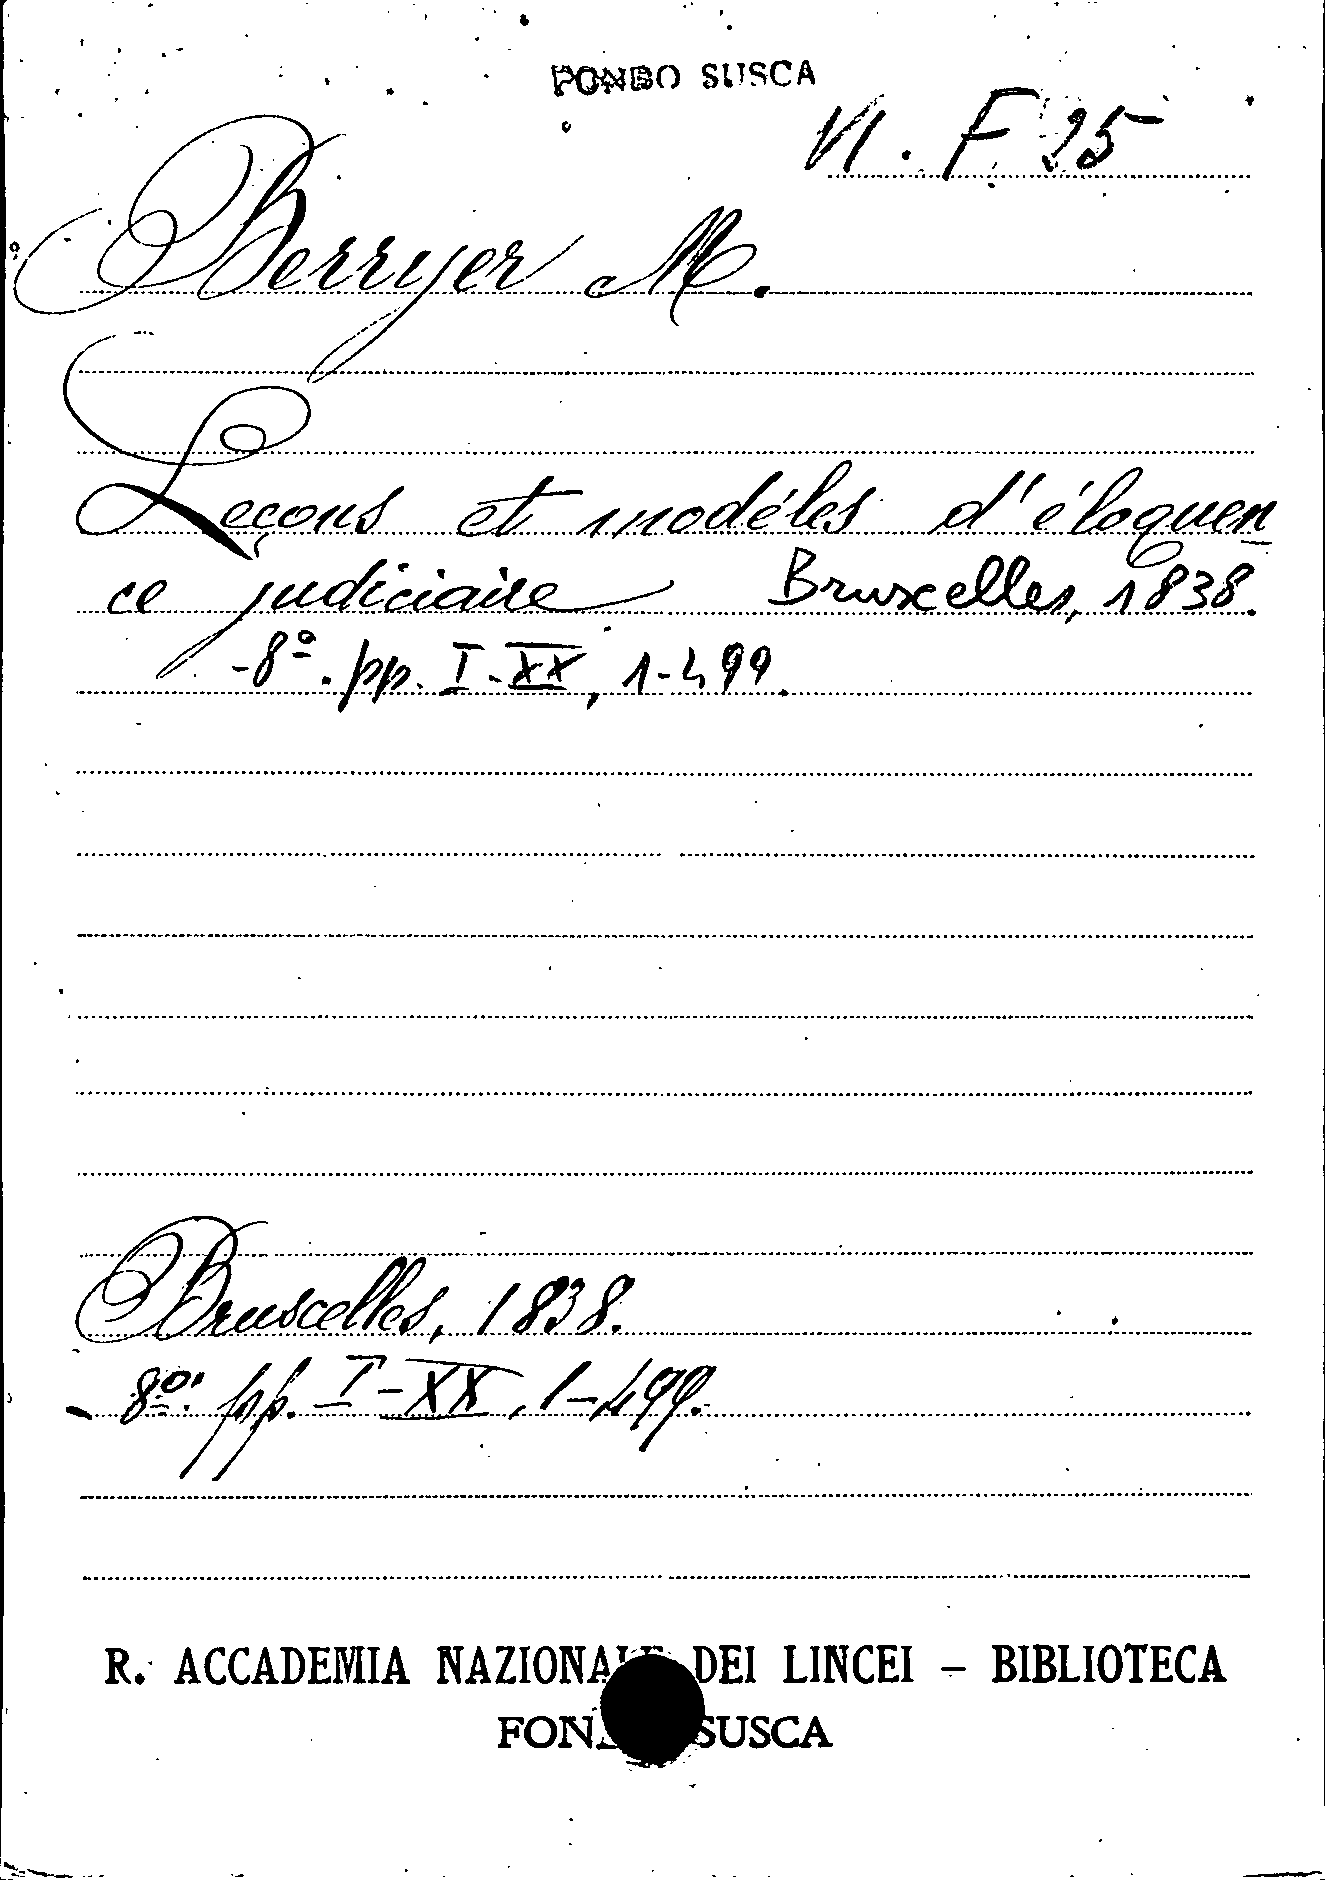 FONDO SUSCA
VI. F 25
Berryer M.
Leçons et modéles d'éloquen
ce judiciaire Bruxelles, 1838.
-8º. pp. I-XX, 1-499.
Bruxcelles, 1838.
- 8º. pp. I-XX, 1-499.
R. ACCADEMIA NAZIONALE DEI LINCEI – BIBLIOTECA
FONDO SUSCA